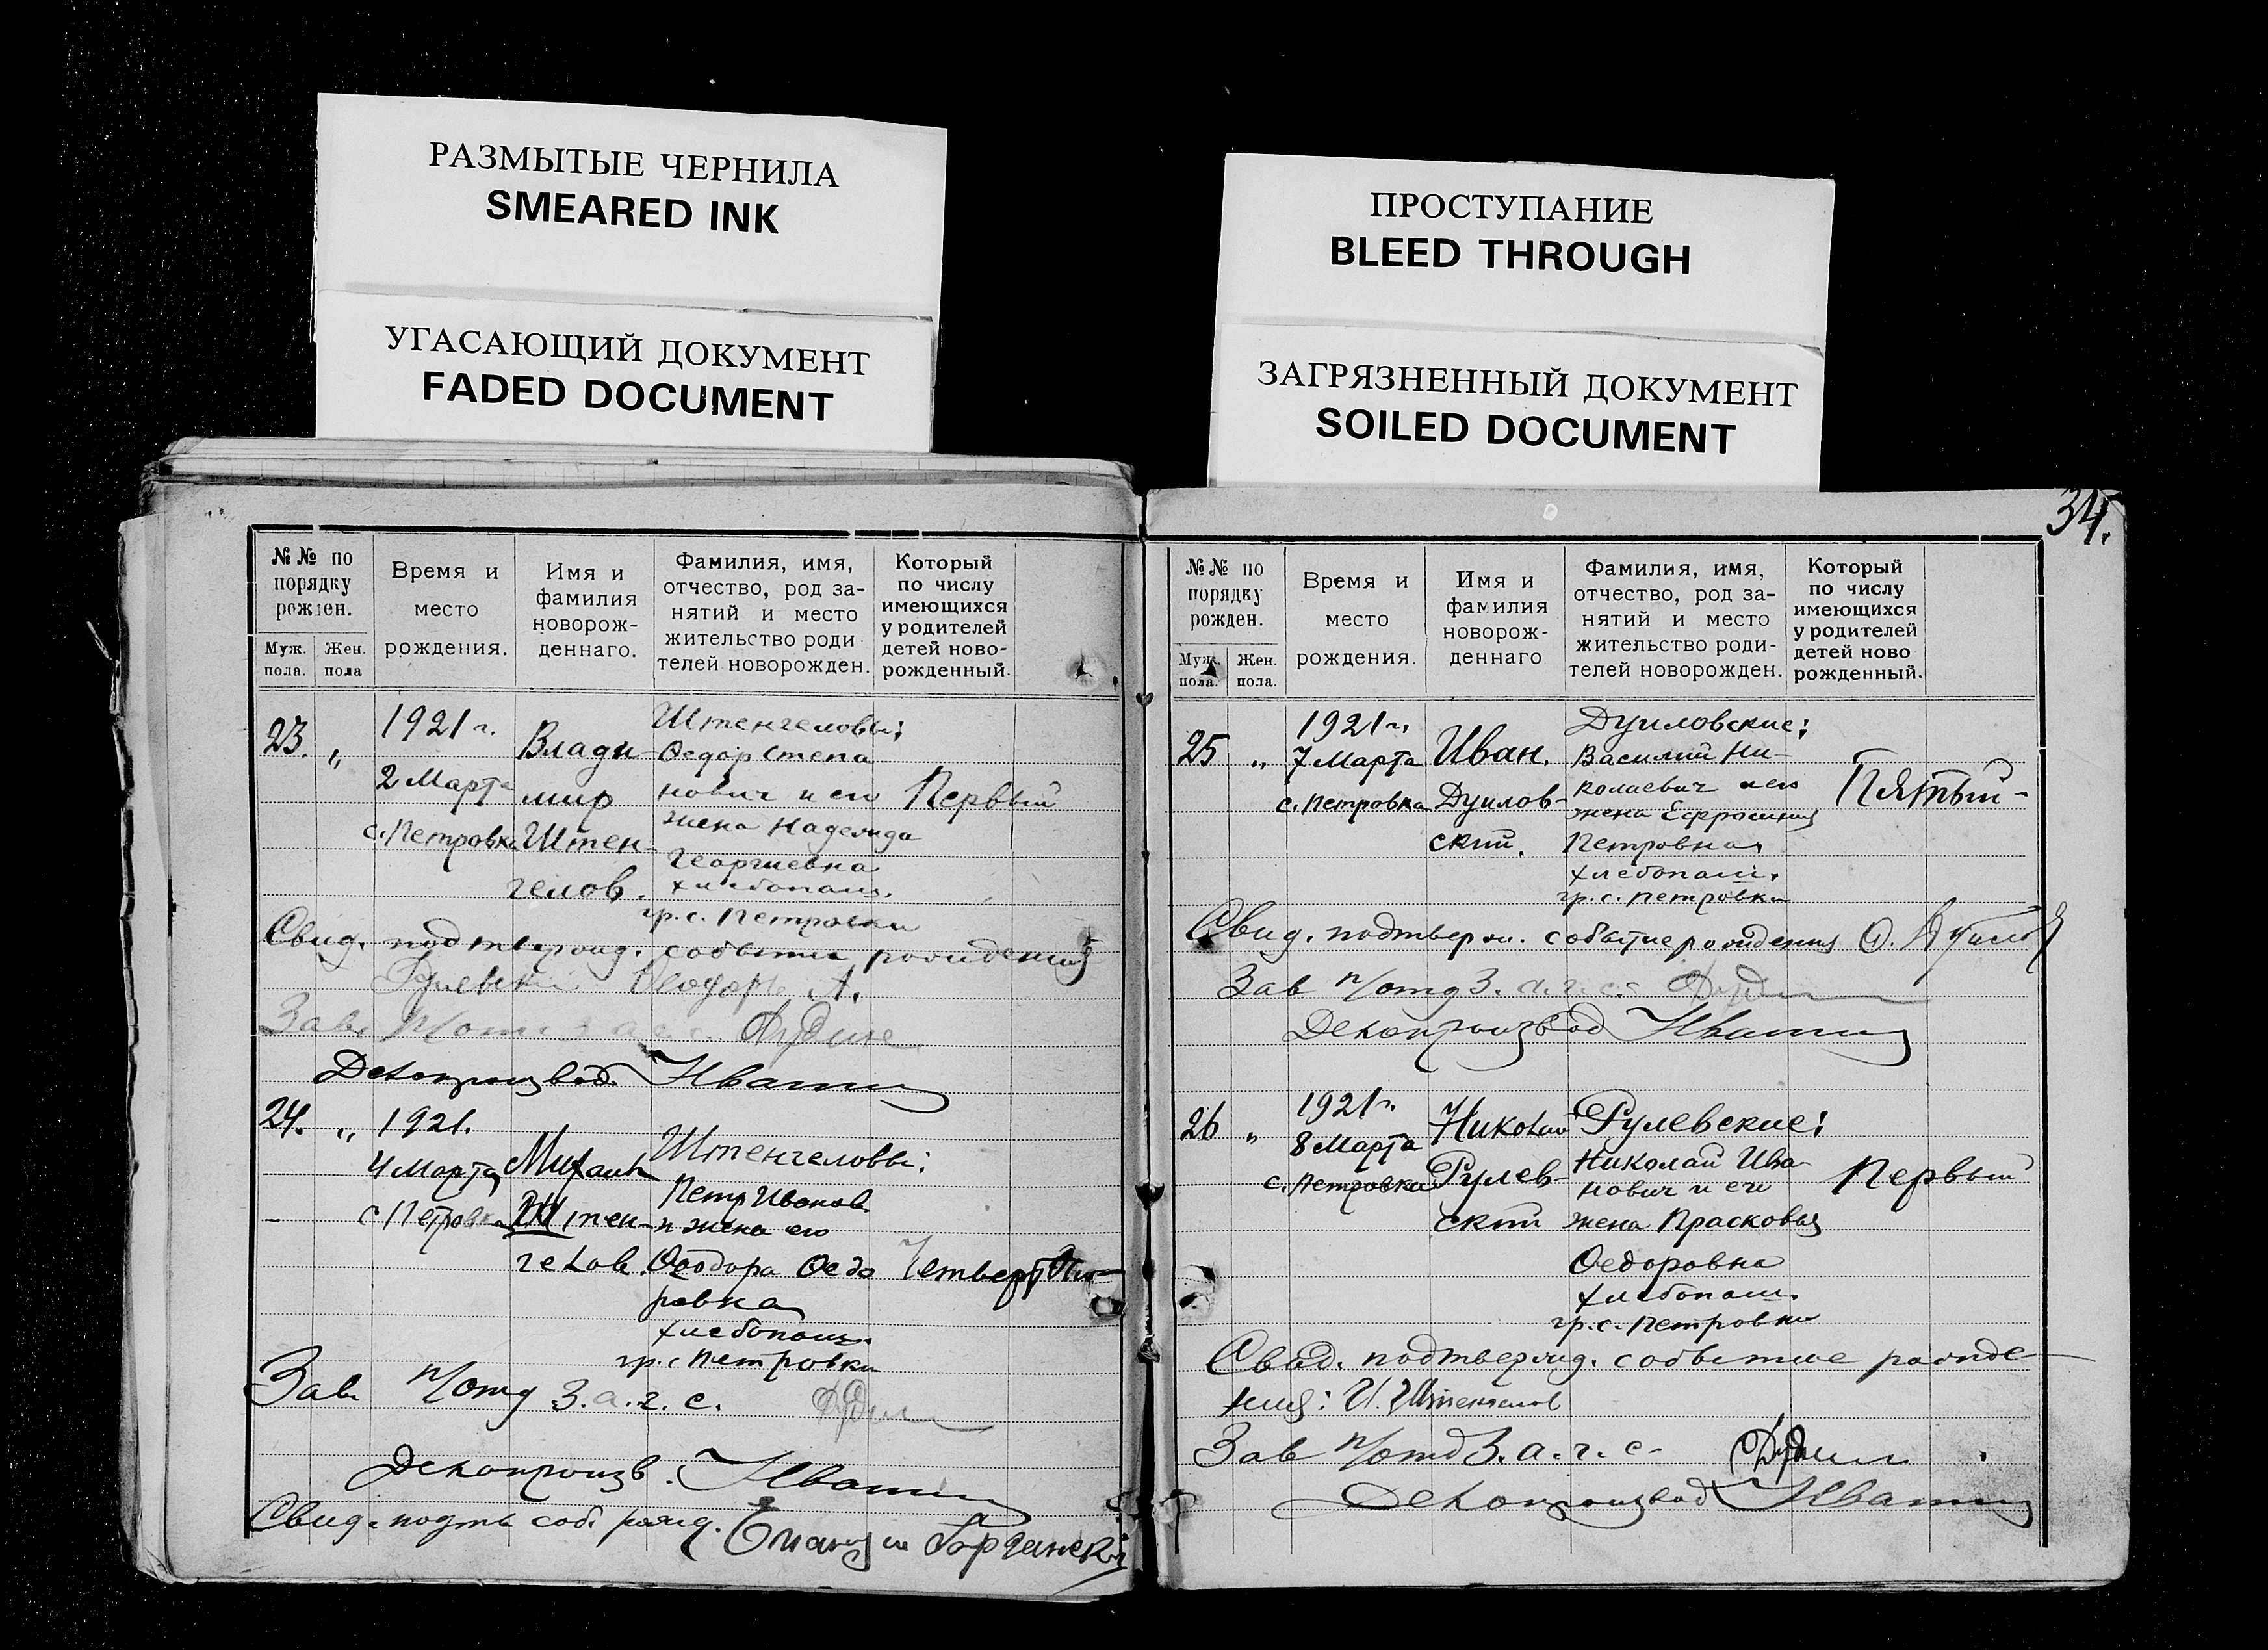 РАЗМЫТЫЕ ЧЕРНИЛА
SMEARED INK
УГАСАЮЩИЙ ДОКУМЕНТ
FADED DOCUMENT
ПРОСТУПАНИЕ
BLEED THROUGH
ЗАГРЯЗНЕННЫЙ ДОКУМЕНТ
SOILED DOCUMENT
№№ по порядку рожден.
Муж. пола.
Жен. пола
Время и место рождения.
Имя и фамилия новорож-
деннаго.
Фамилия, имя,
отчество, род за-
нятий и место
жительство роди
телей новорожден.
Который
по числу
имеющихся
у родителей
детей ново-
рожденный.
23. „
1921 г.
2 Марта
с. Петровка
Влади-
мир
Штен-
гелов.
Штенгеловы:
Ѳедор Степа
нович и его
жена Надежда
Георгиевна
хлебопаш.
гр. с. Петровки
Первый
Свид. подтвержд. событие рождения
Зав. п/отд З.а.г.с.
Делопроизвод.
24. „
1921.
4 Марта
с Петровка
Михаил
Штен-
гелов.
Штенгеловы:
Петр Иванов
и жена его
Ѳеодора Ѳедо
ровна
хлебопаш.
гр. с Петровки
Зав п/отд З.а.г.с.
Делопроизв.
Свид. подтв соб. рожд.
34.
№№ по порядку рожден.
Муж. пола.
Жен. пола.
Время и место рождения.
Имя и фамилия новорож-
деннаго
Фамилия, имя,
отчество, род за-
нятий и место
жительство роди-
телей новорожден.
Который
по числу
имеющихся
у родителей
детей ново
рожденный.
25 „
1921 г.
7 Марта
с. Петровка
Иван.
ский.
Василий Ни-
колаевич и его
жена Ефросиния
Петровна
хлебопаш.
гр. с. Петровки
Пятый
Свид. подтверж. событие рождения
Зав п/отд З.а.г.с.
Делопроизвод
26 „
1921 г.
8 Марта
с. Петровка
Николай
Рулев-
ский
Рулевские:
Николай Ива-
нович и его
жена Прасковья
Ѳедоровна
хлебопаш.
гр. с. Петровки
Первый
Свид. подтвержд. событие рожде-
ния: И. Штенгелов
Зав п/отд З.а.г.с.
Делопроизвод